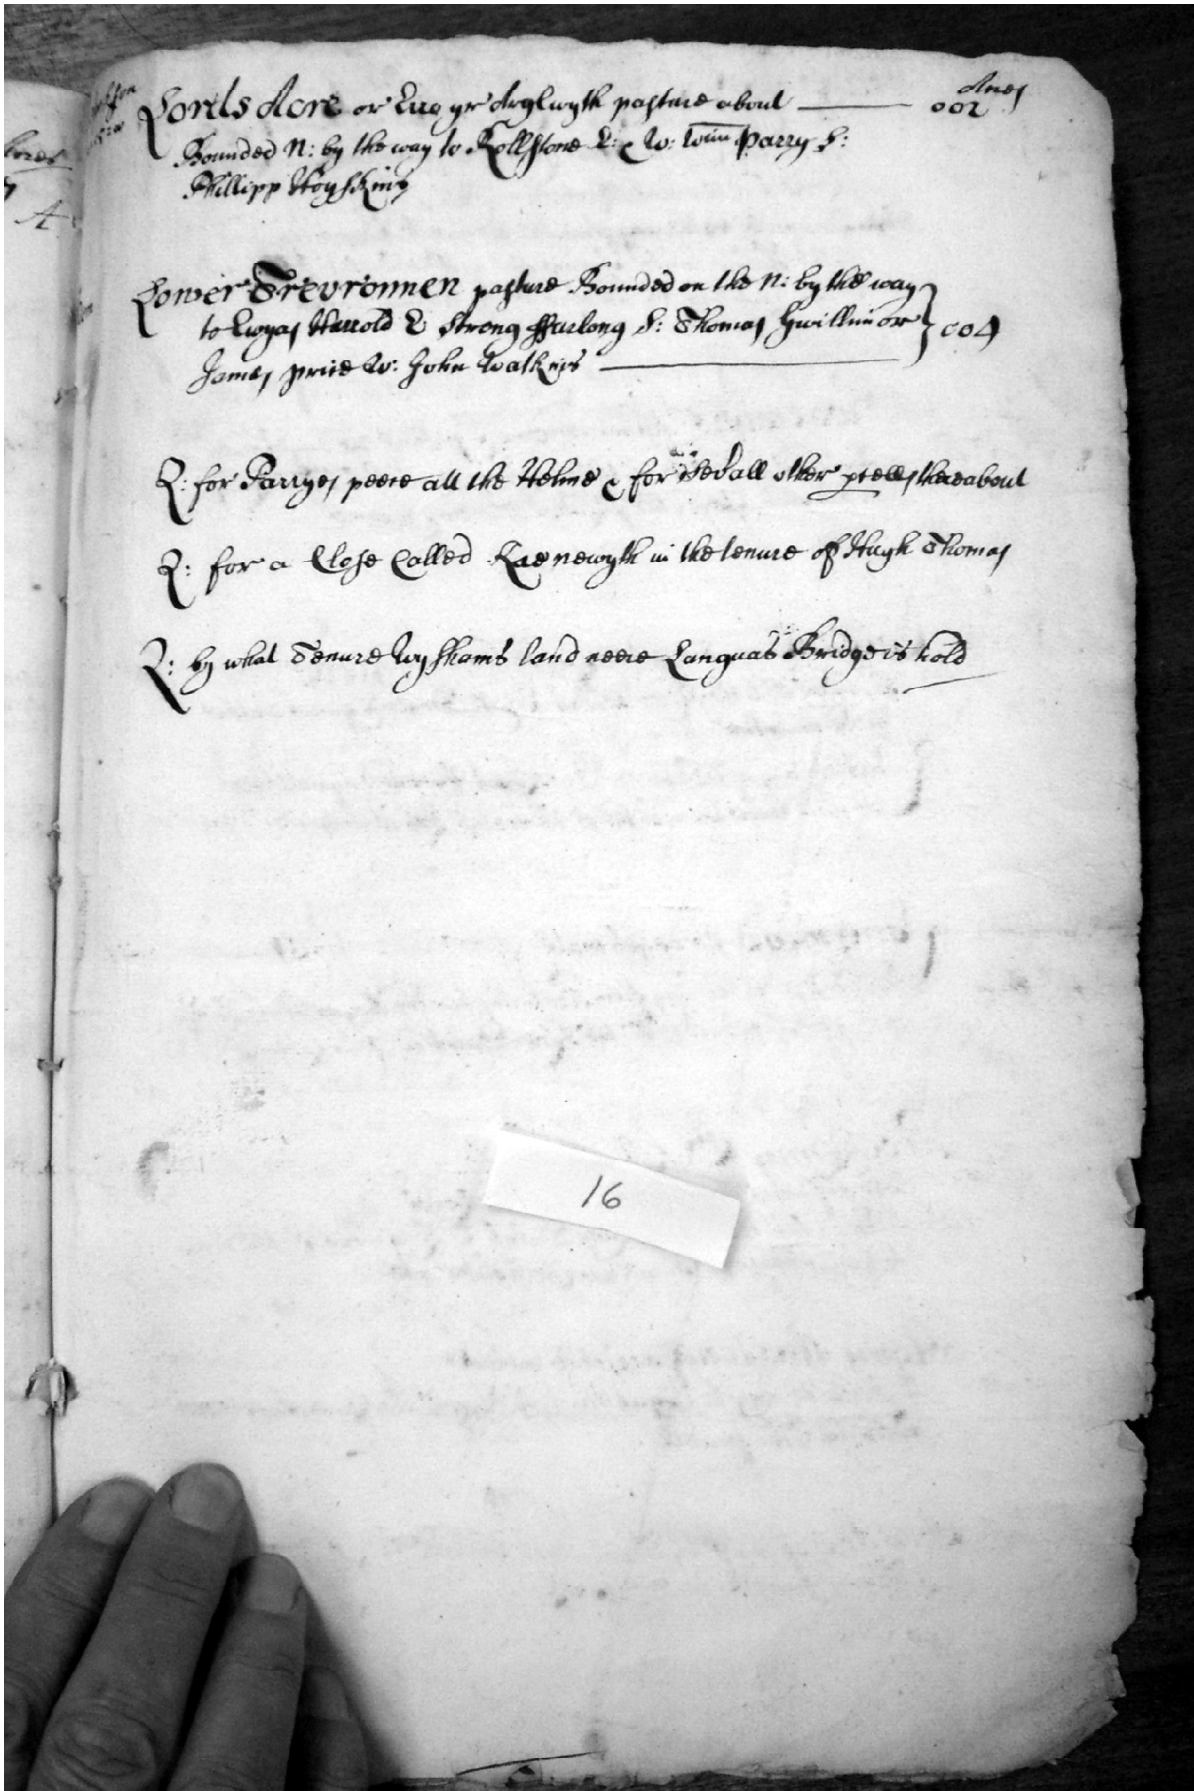 Acres
Lords Acre or Kae yr Arglwyth pasture about — 002
Bounded N: by the way to Rollstone E: & W: Wm Parry S:
Phillipp Hoyskins
Lower Trevronnen pasture Bounded on the N: by the way
to Ewyas Harrold E Strong ffurlong S: Thomas Gwillim or } 004
James price W: John Watkins —
Q: for Parryes peece all the Helme & for all other thereabout
Q: for a Close Called Kae newyth in the tenure of Hugh Thomas
Q: by what Tenure Wyshams land neere Languas Bridge is hold
16